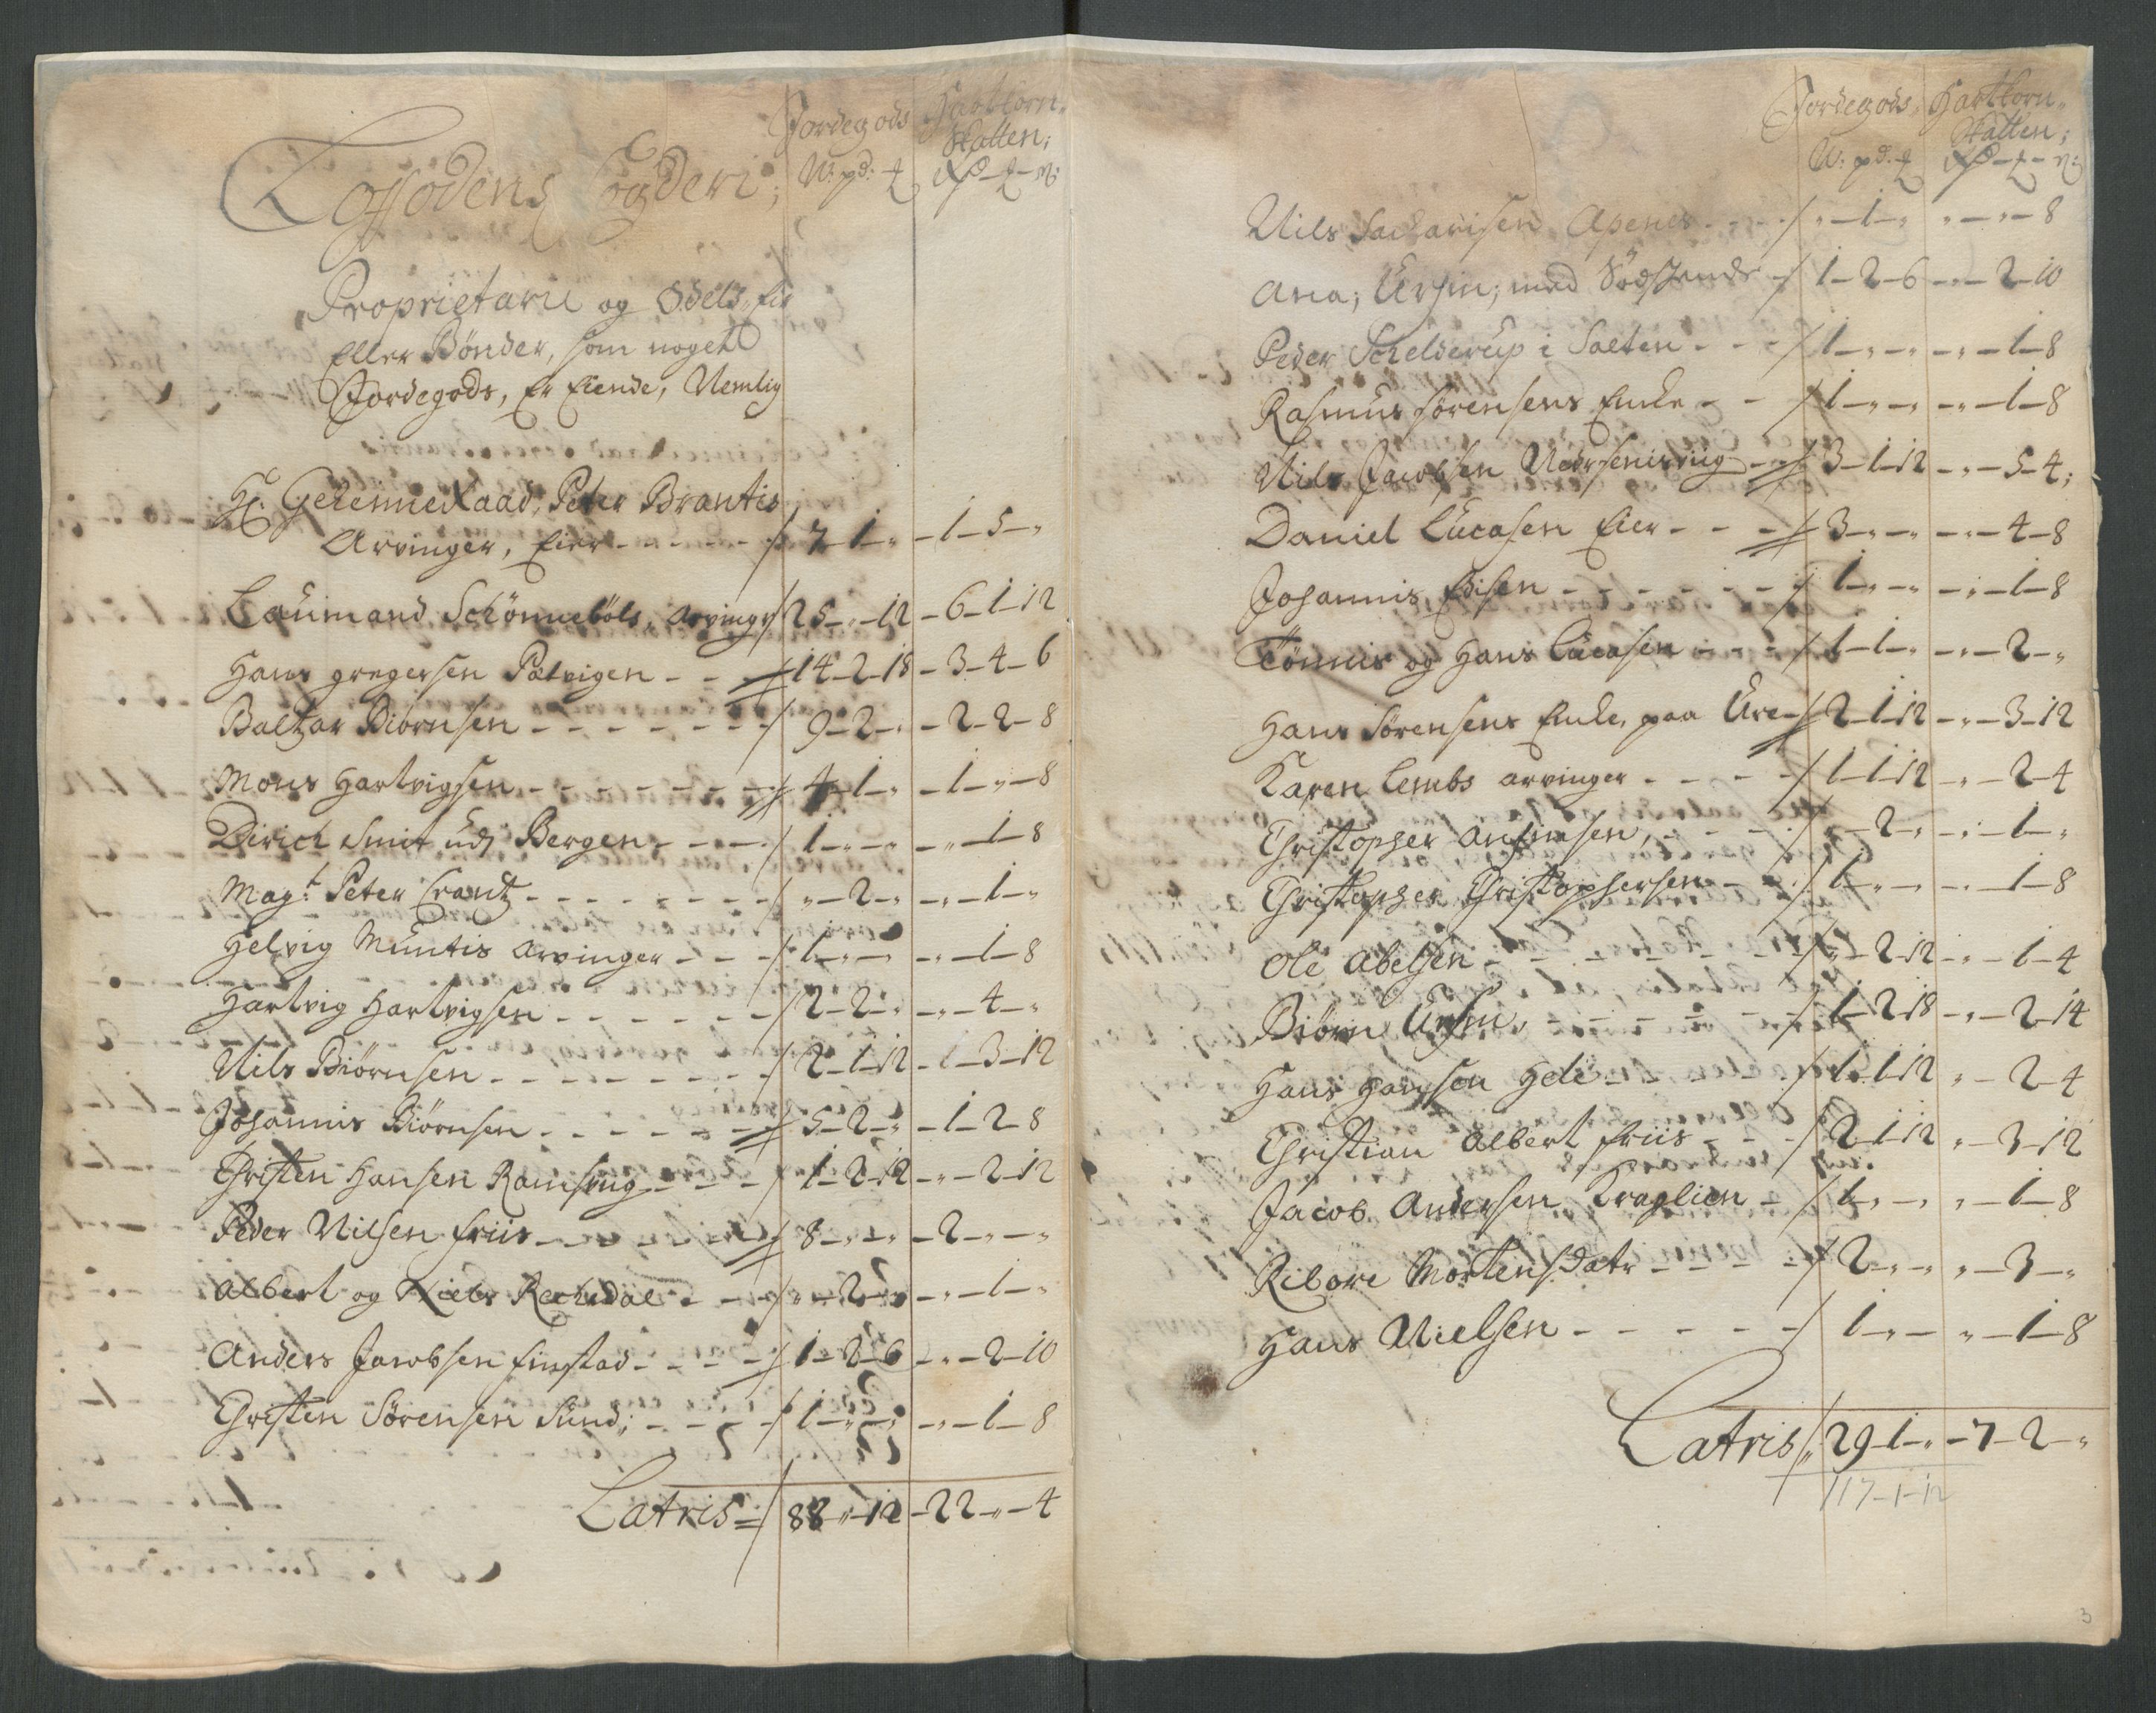 Jordegods Hartkorn„
Skatten;
Loffodens fogderi; W: pd: ₰ Rd – ₰ – ß:
Proprietarii og Odels„
Eller Bønder, som noget
Jordegods, Er Eiende, Nemlig
Hr: Geheimeraad; Peter Brantis
Arvinger, Eier - - - - - / 7–1–„ –1–5–„
Laumand Schønnebøls, Arvinger / 25–„–12 –6–1–12
Hans gregersen Palvigen - - / 14–2–18 –3–4–6
Baltzar Biørnsen - - - - - - - / 9–2–„ –2–2–8
Mons Hartvigsen - - - - - - - / 4–1–„ –1–„–8
Dirich Smit udj Bergen - - - - / 1–„–„ –„–1–8
Mag:t Peter Crantz - - - - - - - / „–2–„ –„–1–„
Helvig Muntis Arvinger - - - / 1–„–„ –„–1–8
Hartvig Hartvigsen - - - - - - / 2–2–„ –„–4–„
Nils Biørnsen - - - - - - - - / 2–1–12 –„–3–12
Johannis Biørnsen - - - - - - / 5–2–„ –1–2–8
Christen Hansen Ramsvig - - - / 1–2–12 –„–2–12
Peder Nilsen friis - - - - - - - / 8–„–„ –2–„–„
Albert og Niels Rechdal - - - / „–2–„ –„–1–„
Anders Jacobsen finstad - - - - / 1–2–6 –„–2–10
Christen Sørensen Sund; - - - - / 1–„–„ –„–1–8
Latris = / 88–„–12 –22–„–4
Jordegods Hartkorn„
Skatten;
W: pd: ₰ Rd – ₰ – ß:
Nils Sacarisen Apenes - - - - / „–1–„ „–„–8
Ana; Ursin; med Sødskende - / 1–2–6 –„–2–10
Peder Schelderup i Salten - - - / 1–„–„ –„–1–8
Rasmus Sørensens Enke - - / 1–„–„ –„–1–8
Nils Jacobsen - - / 3–1–12 –„–5–4;
Daniel Lucasen Eier - - - / 3–„–„ –„–4–8
Johannis Edisen - - - - - - - / 1–„–„ –„–1–8
Tønnis og Hans Lucasen - - - / 1–1–„ –„–2–„
Hans Sørensens Enke, paa Ure - / 2–1–12 –„–3–12
Karen Lembs arvinger - - - - / 1–1–12 –„–2–4
Christopher Ansimsen, - - - - / „–2–„ –„–1–„
Christopher Christophersen - - / 1–„–„ –„–1–8
Ole Abelsen - - - - - - - / „–2–12 –„–1–4
Biørn Ursin, - - - - - - - / 1–2–18 –„–2–14
Hans Hansen Hele - - - - - / 1–1–12 „–2–4
Christian Albert friis - - - / 2–1–12 „–3–12
Jacob Andersen Kraglien - / 1–„–„ „–1–8
Ribore Mortensdatr - - - - - / 2–„–„ „–3–„
Hans Nielsen - - - - - - / 1–„–„ „–1–8
Latris / 29–1–„ –7–2–„
117–1–12
3